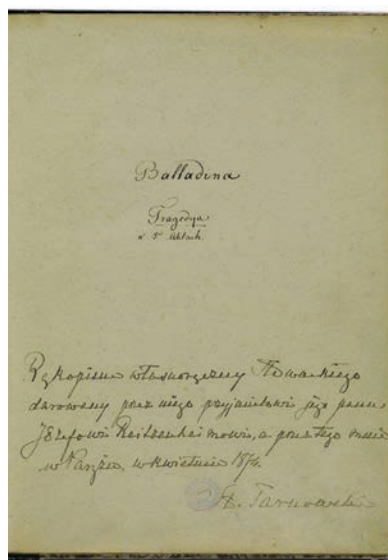 Balladina
Tragedya
w 5 Aktach.
Rękopism własnoręczny Słowackiego
darowany przez niego przyjacielowi jego panu
Józefowi Reitzenheimowi, a przez tego mnie
w Paryżu, w kwietniu 1874.
St. Tarnowski